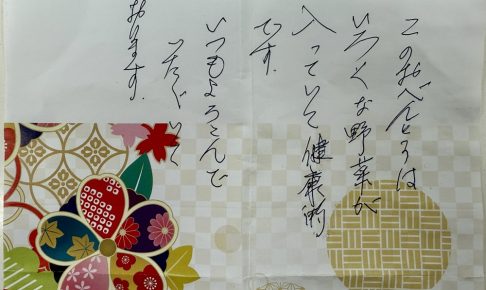 このお弁とうは
いろくな野菜が
入っていて健康的
です。
いつもよろこんで
いただいて
おります。